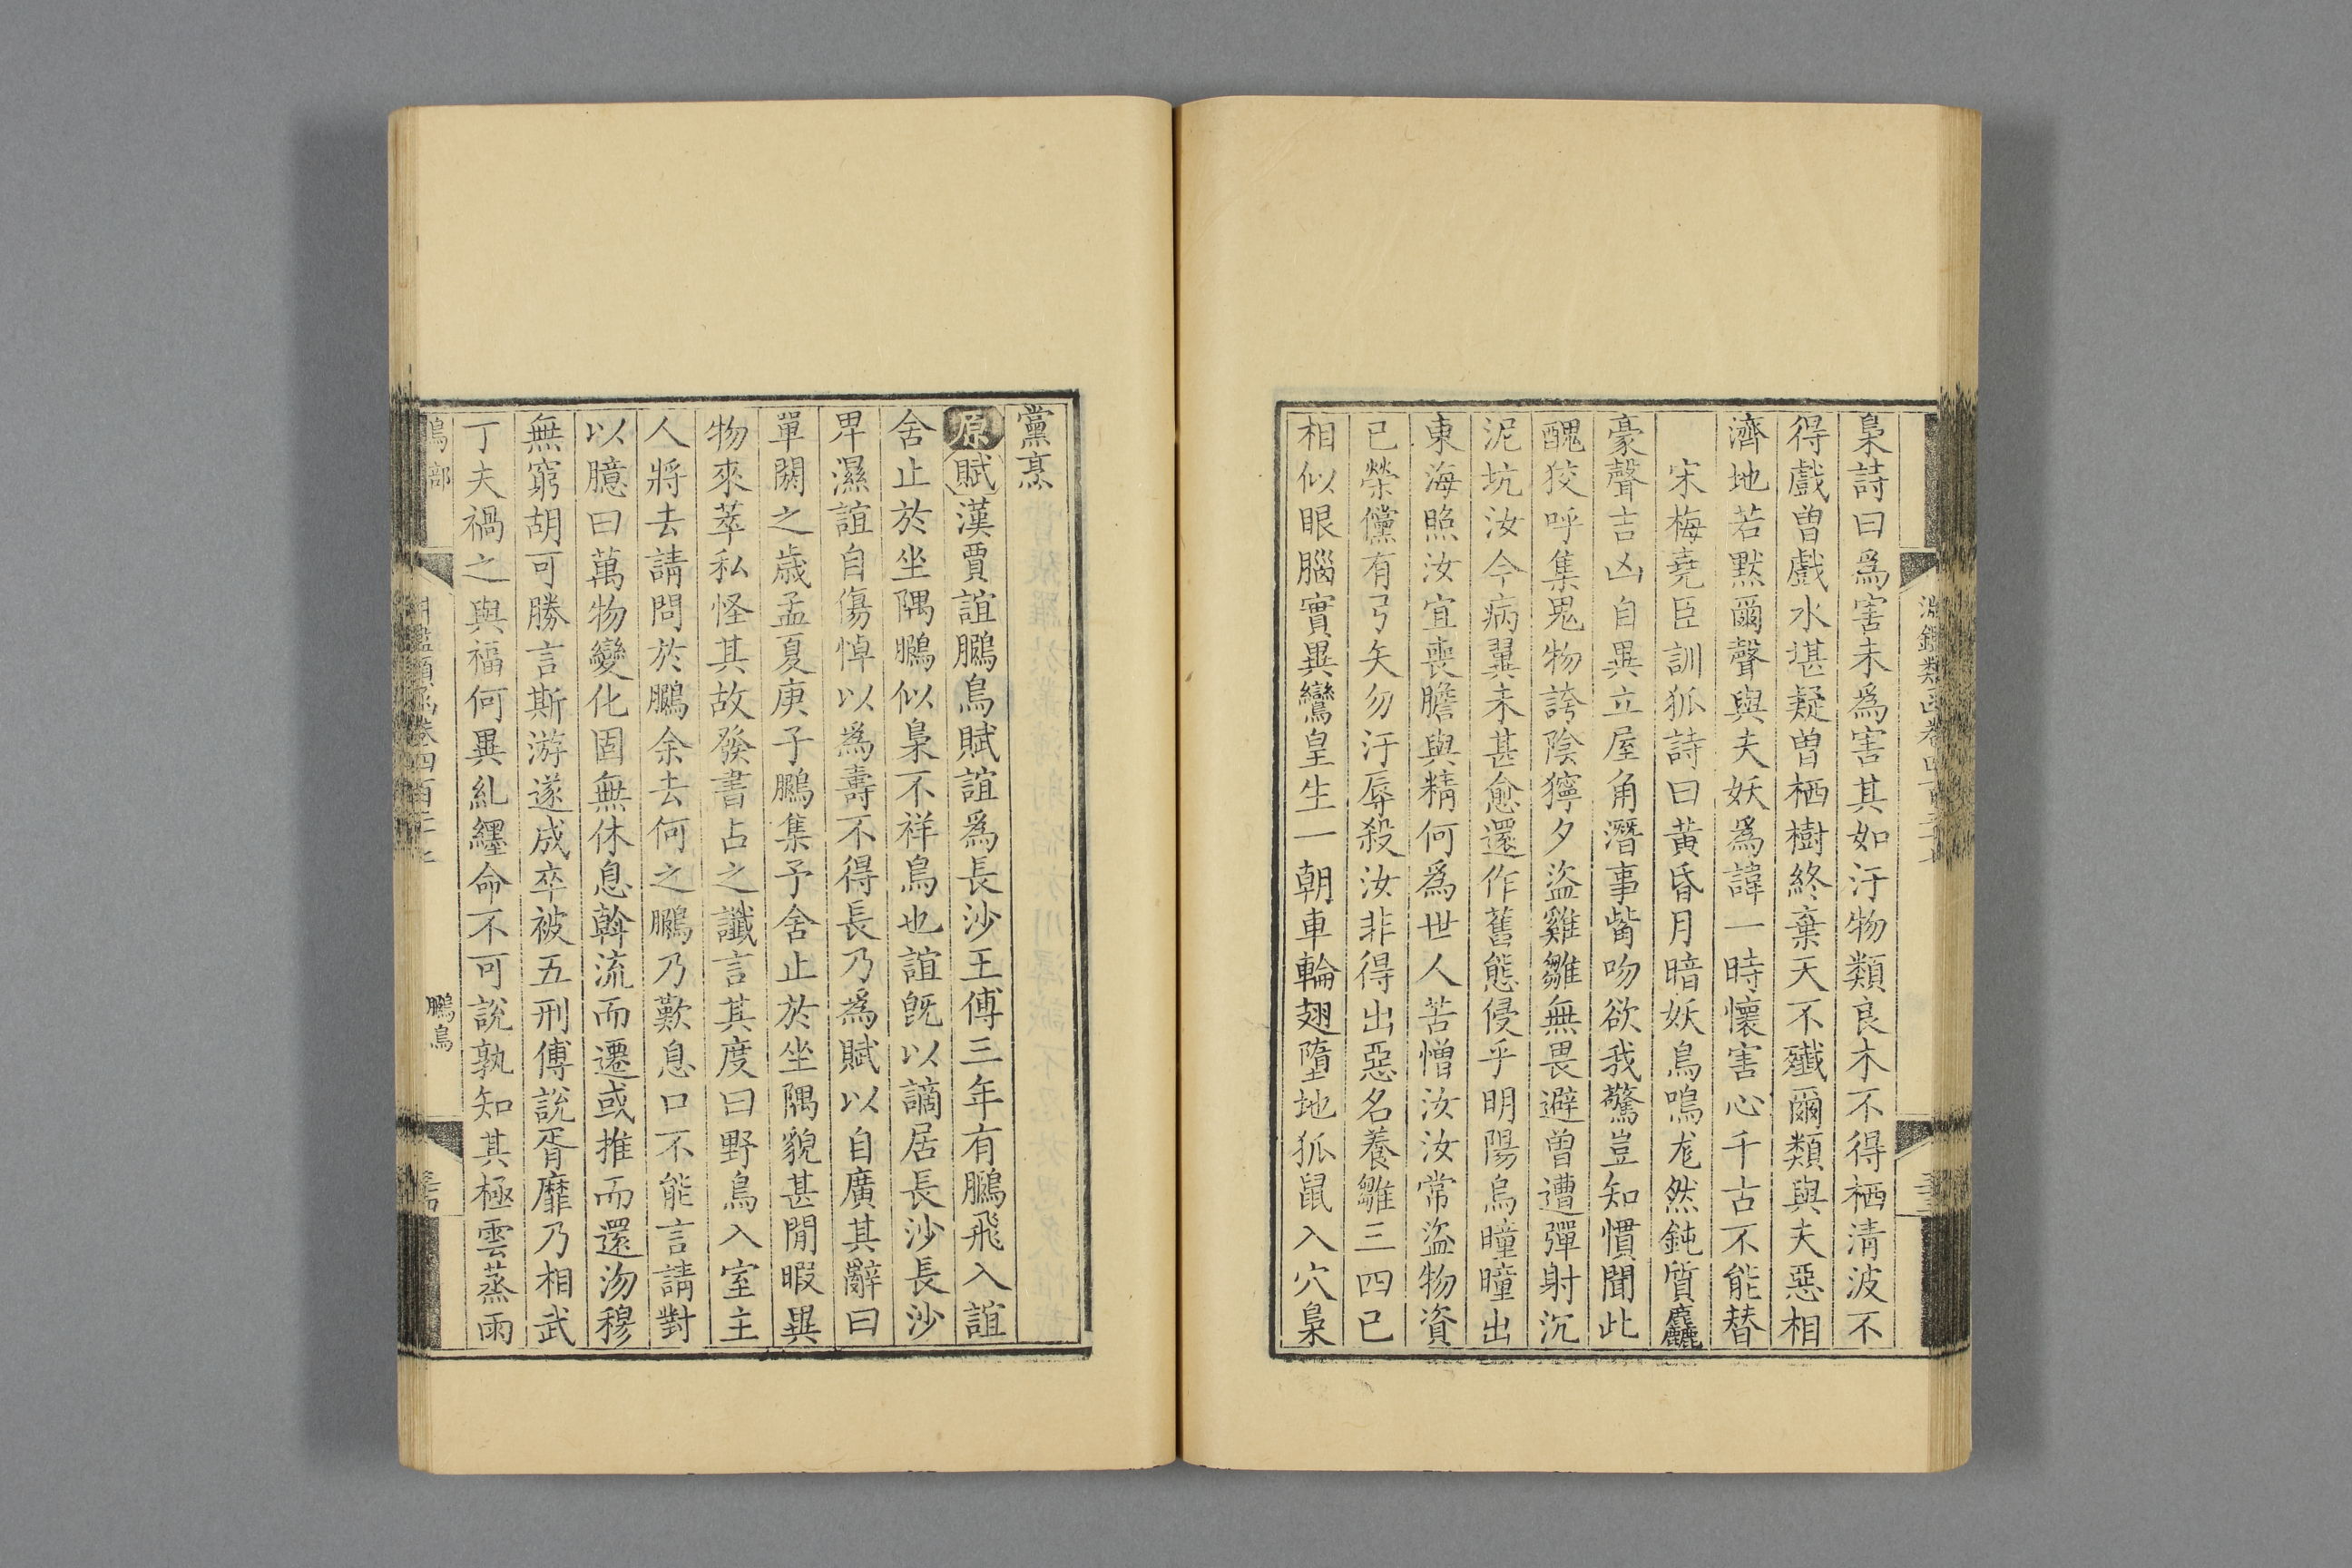 梟詩曰爲害未爲害其如汙物類良木不得栖清波不
得戲曾戲水堪疑曾栖樹終棄天不殱爾類與夫惡相
濟地若黙爾聲與夫妖爲諱一時懷害心千古不能替
宋梅堯臣訓狐詩曰黃昏月暗妖鳥鳴尨然鈍質麤
豪聲吉凶自異立屋角潛事觜吻欲我驚豈知慣聞此
醜狡呼集鬼物誇陰獰夕盜雞雛無畏避曾遭彈射沉
泥坑汝今病翼未甚愈還作舊態侵乎明陽烏曈曈出
東海照汝宜喪膽與精何爲世人苦憎汝汝常盜物資
已榮儻有弓矢勿汙辱殺汝非得出惡名養雛三四已
相似眼腦實異鸞皇生一朝車輪翅墮地狐鼠入穴梟
黨烹
原賦漢賈誼鵩鳥賦誼爲長沙王傅三年有鵩飛入誼
舍止於坐隅鵩似梟不祥鳥也誼旣以謫居長沙長沙
卑濕誼自傷悼以爲壽不得長乃爲賦以自廣其辭曰
單閼之歲孟夏庚子鵩集予舍止於坐隅貌甚閒暇異
物來萃私怪其故發書占之讖言其度曰野鳥入室主
人將去請問於鵩余去何之鵩乃歎息口不能言請對
以臆曰萬物變化固無休息斡流而遷或推而還沕穆
無窮胡可勝言斯游遂成卒被五刑傅說胥靡乃相武
丁夫禍之與福何異糺纆命不可說孰知其極雲蒸雨
鳥部
鵩鳥